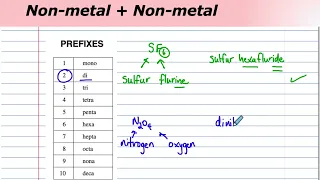 Non-metal + Non-metal
PREFIXES
1 mono
2 di
3 tri
4 tetra
5 penta
6 hexa
7 hepta
8 octa
9 nona
10 deca
SF6
sulfur flurine
sulfur hexafluride
N2O4
nitrogen oxygen
dinit